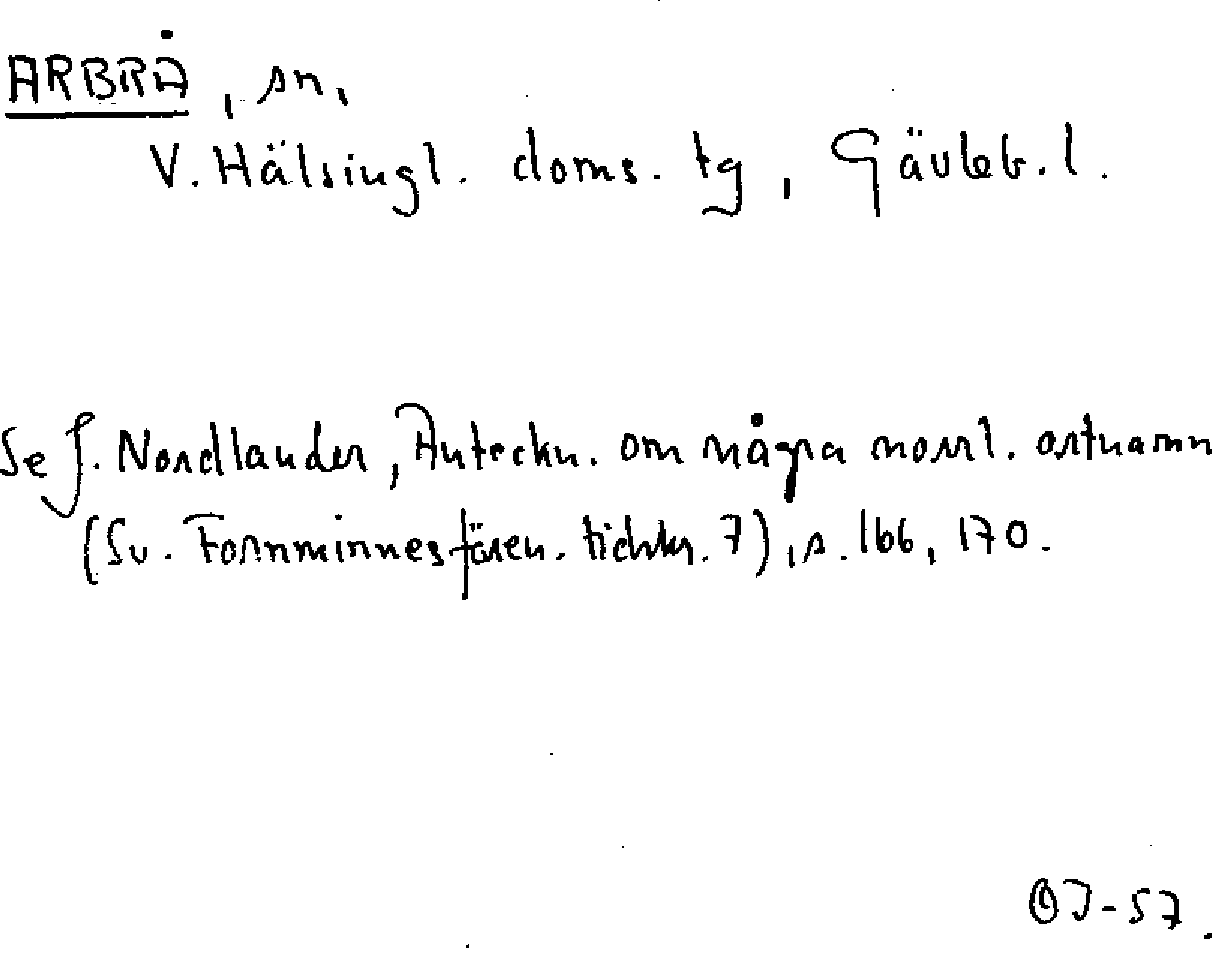 ARBRÅ, sn,
V. Hälsingl. doms. tg, Gävleb. l.
Se J. Nordlander, Anteckn. om några norrl. ortnamn
(Sv. Fornminnesfören. tidskr. 7), s. 166, 170.
OJ-57.